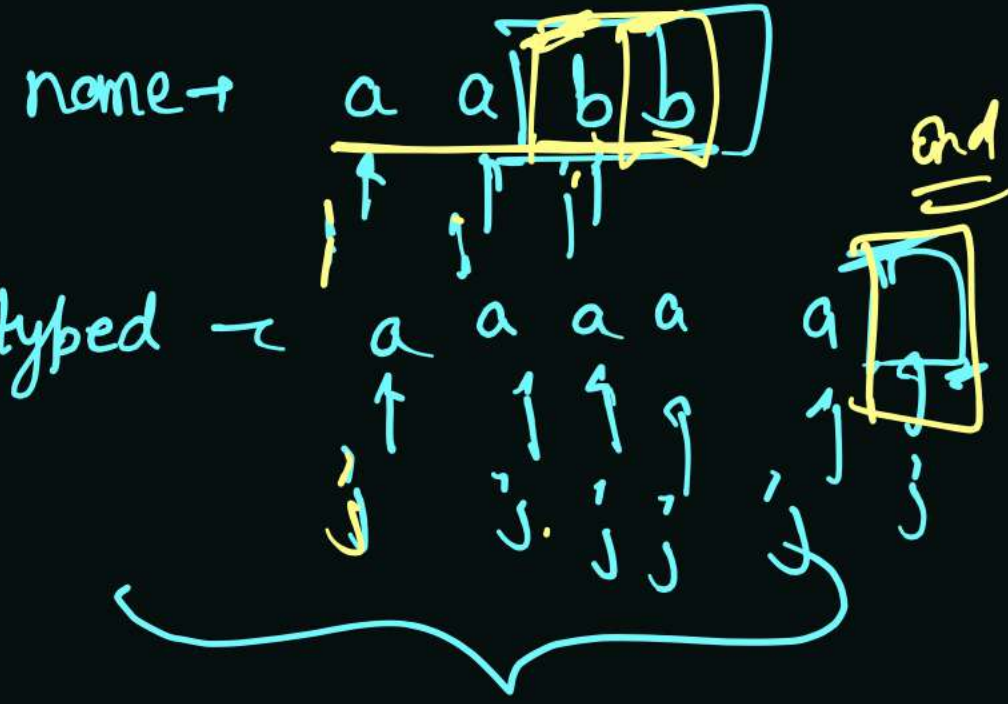 name → a a b b
end
i i i
typed - a a a a a
j j j j j j